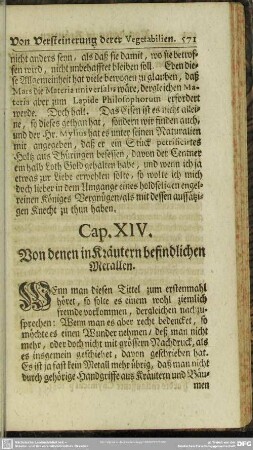 Von Versteinerung derer Vegetabilien. 571
nicht anders seyn, als daß sie damit, wo sie betrof-
fen wird, nicht unbehafftet bleiben soll. Eben die-
se Allgemeinheit hat viele bewogen zu glauben, daß
Mars die Materia universalis wäre, dergleichen Ma-
teria aber zum Lapide Philosophorum erfordert
werde. Doch halt. Das Eisen ist es nicht allei-
ne, so dieses gethan hat, sondern wir finden auch,
und der Hr. Mylius hat es unter seinen Naturalien
mit angegeben, daß er ein Stück petrificirtes
Holtz aus Thüringen besessen, davon der Centner
ein halb Loth Gold gehalten habe, und wenn ich ja
etwas zur Liebe erwehlen solte, so wolte ich mich
doch lieber in dem Umgange eines holdseligen engel-
reinen Königes Vergnügen, als mit dessen aussätzi-
gen Knecht zu thun haben.
Cap. XIV.
Von denen in Kräutern befindlichen
Metallen.
WEnn man diesen Tittel zum erstenmahl
höret, so solte es einem wohl ziemlich
fremde vorkommen, dergleichen nachzu-
sprechen: Wenn man es aber recht bedencket, so
möchte es einen Wunder nehmen, deß man nicht
mehr, oder doch nicht mit grössern Nachdruck, als
es insgemein geschiehet, davon geschrieben hat.
Es ist ja fast kein Metall mehr übrig, daß man nicht
durch gehörige Handgriffe aus Kräutern und Bäu-
men